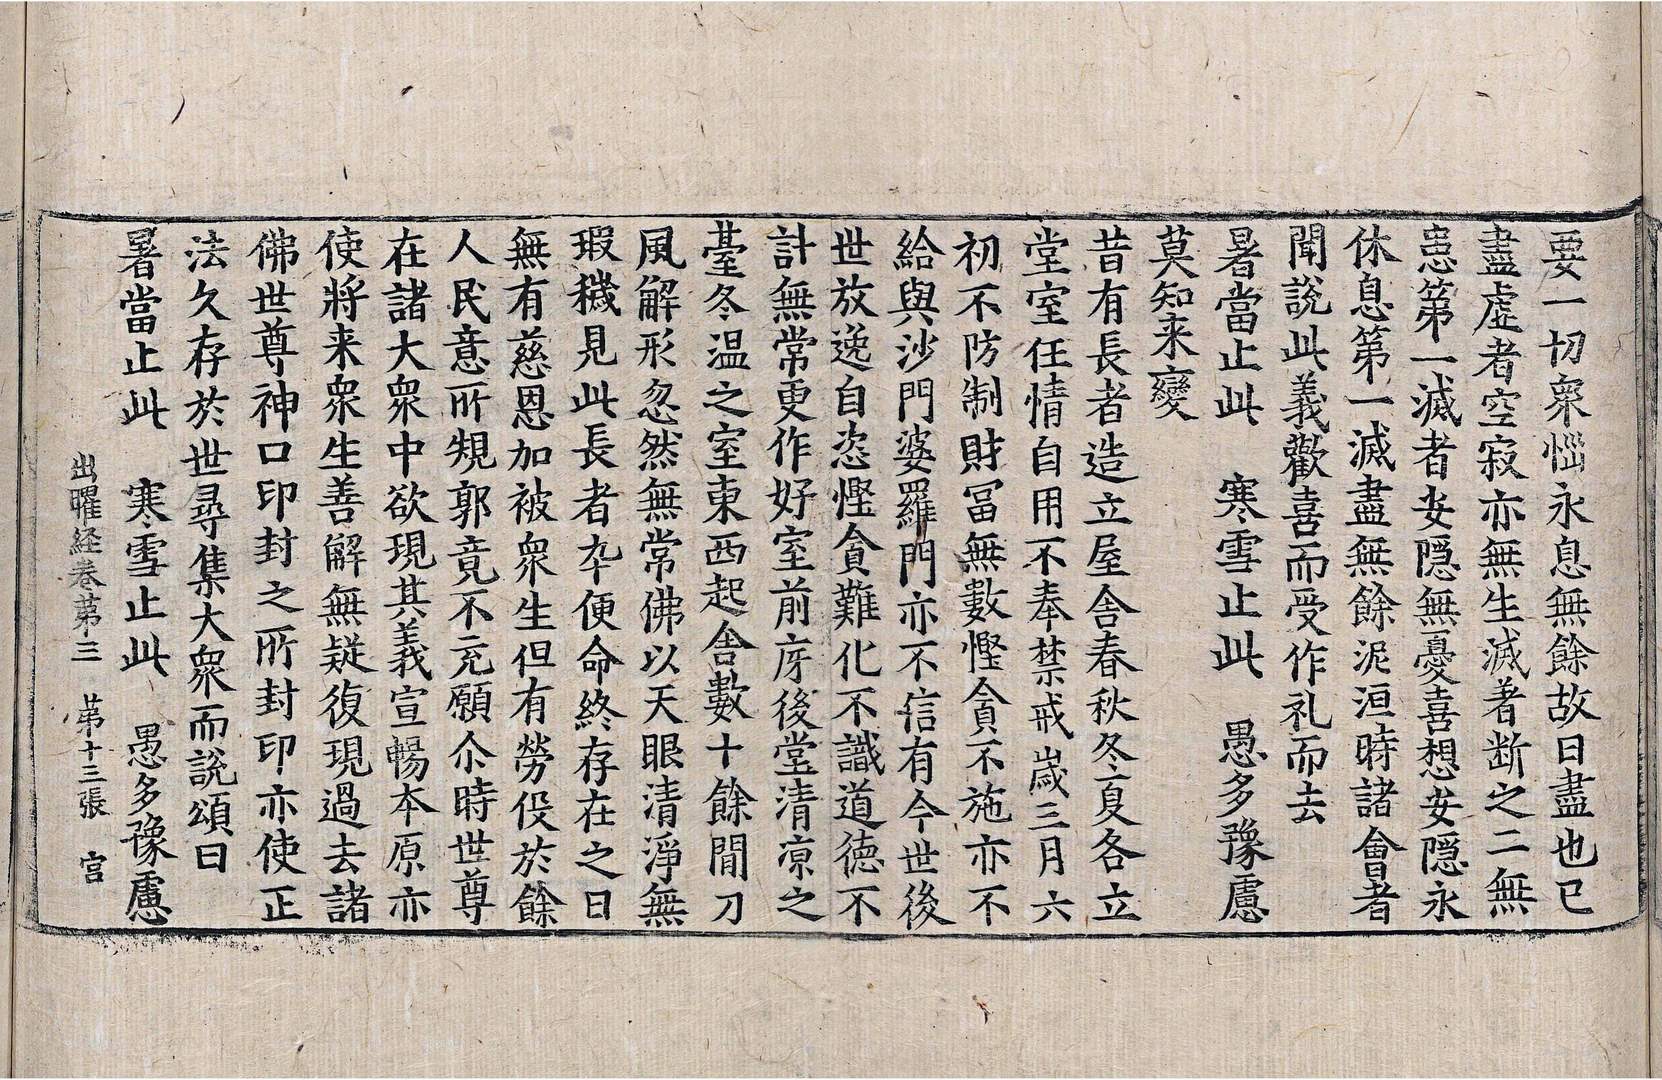 要一切衆惱永息無餘故曰盡也已
盡虛者空寂亦無生滅著断之二無
患第一滅者安隠無憂喜想安隠永
休息第一滅盡無餘泥洹時諸會者
聞說此義歡喜而受作礼而去
暑當止此　寒雪止此　愚多豫慮
莫知来變
昔有長者造立屋舍春秋冬夏各立
堂室任情自用不奉禁戒歲三月六
初不防制財冨無數慳貪不施亦不
給與沙門婆羅門亦不信有今世後
世放逸自恣慳貪難化不識道德不
計無常更作好室前庌後堂清凉之
臺冬温之室東西起舍數十餘間刀
風解形忽然無常佛以天眼清淨無
瑕穢見此長者卒便命終存在之日
無有慈恩加被衆生但有勞伇於餘
人民意所䂓郭竟不充願尒時世尊
在諸大衆中欲現其義宣暢本原亦
使將来衆生善解無疑復現過去諸
佛世尊神口印封之所封印亦使正
法久存於世尋集大衆而說頌曰
暑當止此　寒雪止此　愚多豫慮
出曜経卷第三　第十三張　宫